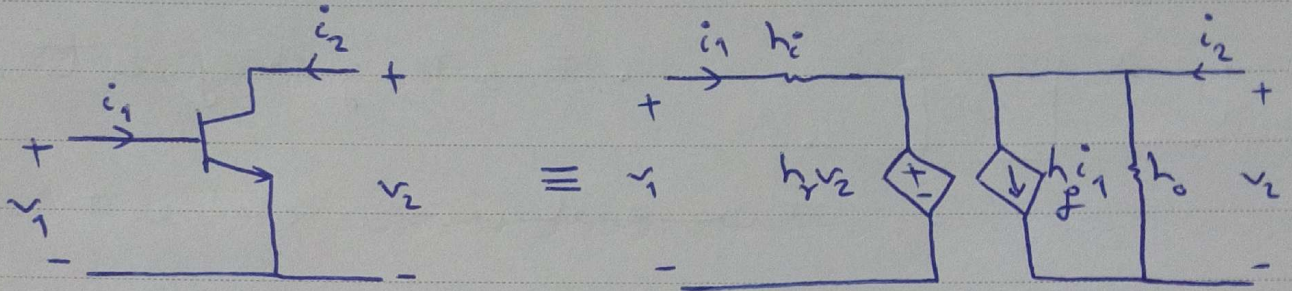 i₂
+
i₁
+
v₁
-
v₂
-
≡
i₁ hᵢ
+
v₁
-
hᵣv₂
+
-
h_f i₁
hₒ
i₂
+
v₂
-